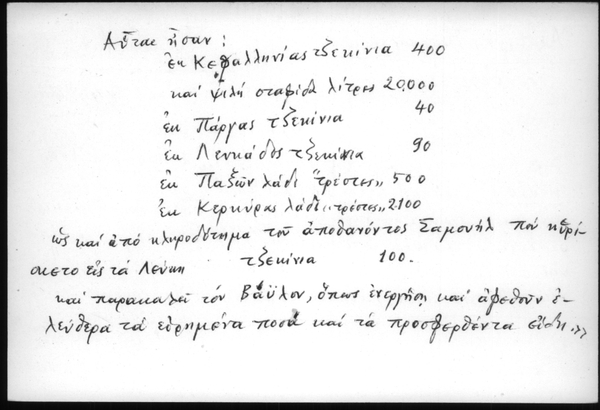 Αὗται ἦσαν:
ἐκ Κεφαλληνίας τζεκίνια 400
καί ψιλή σταφίδα λίτρες 20.000
ἐκ Πάργας τζεκίνια 40
ἐκ Λευκάδος τζεκίνια 90
ἐκ Παξῶν λάδι "τρέστες" 500
ἐκ Κερκύρας λάδι "τρέστες" 2100
ὡς καί ἀπό κληροδότημα τοῦ ἀποθανόντος Σαμουήλ πού ηὑρί-
σκετο εἰς τά Λεύκη τζεκίνια 100.
καί παρακαλεῖ τόν Βάϋλον, ὅπως ἐνεργήσῃ καί ἀφεθοῦν ἐ-
λεύθερα τά εἰρημένα ποσά καί τά προσφερθέντα εἴδη.»